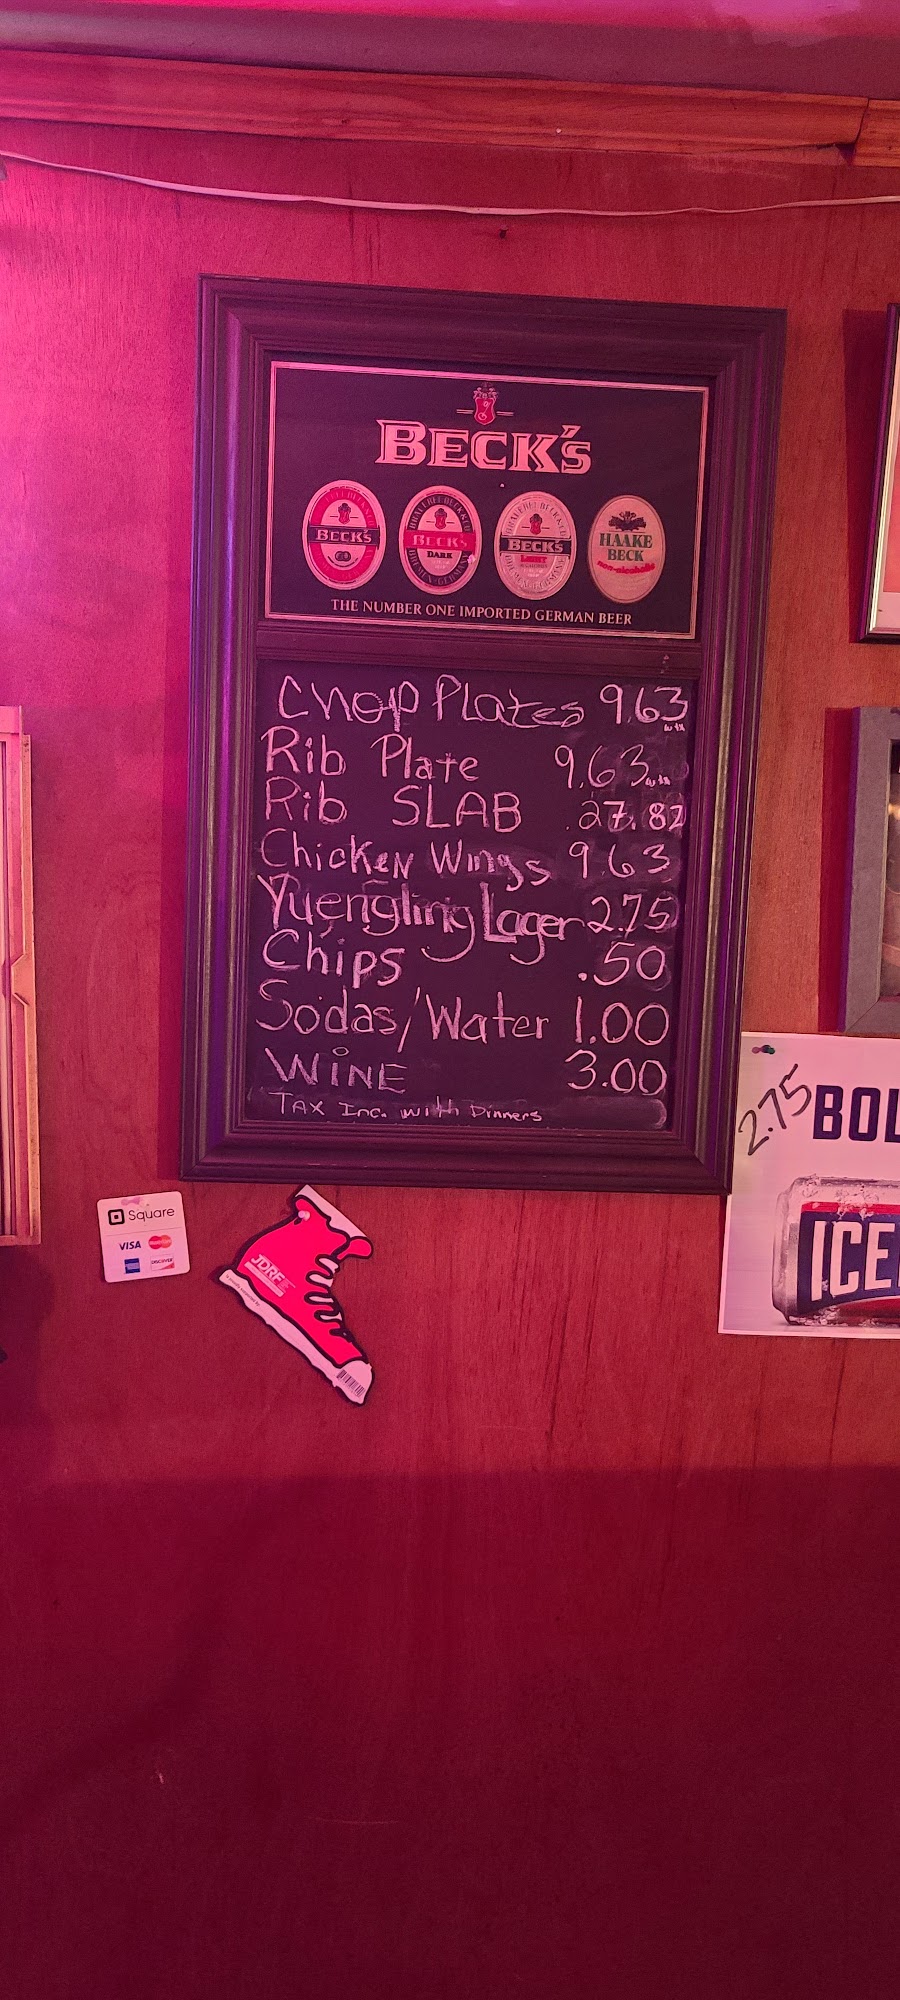 BECK'S
BECK'S
BECK'S
DARK
BECK'S
LIGHT
HAAKE
BECK
non-alcoholic
THE NUMBER ONE IMPORTED GERMAN BEER
Chop Plates 9.63
Rib Plate 9.63
Rib SLAB 27.82
Chicken Wings 9.63
Yuengling Lager 2.75
Chips .50
Sodas/Water 1.00
WiNE 3.00
TAX Inc. with Dinners
2.75
BOL
ICE
Square
VISA
DISCOVER
JDRF